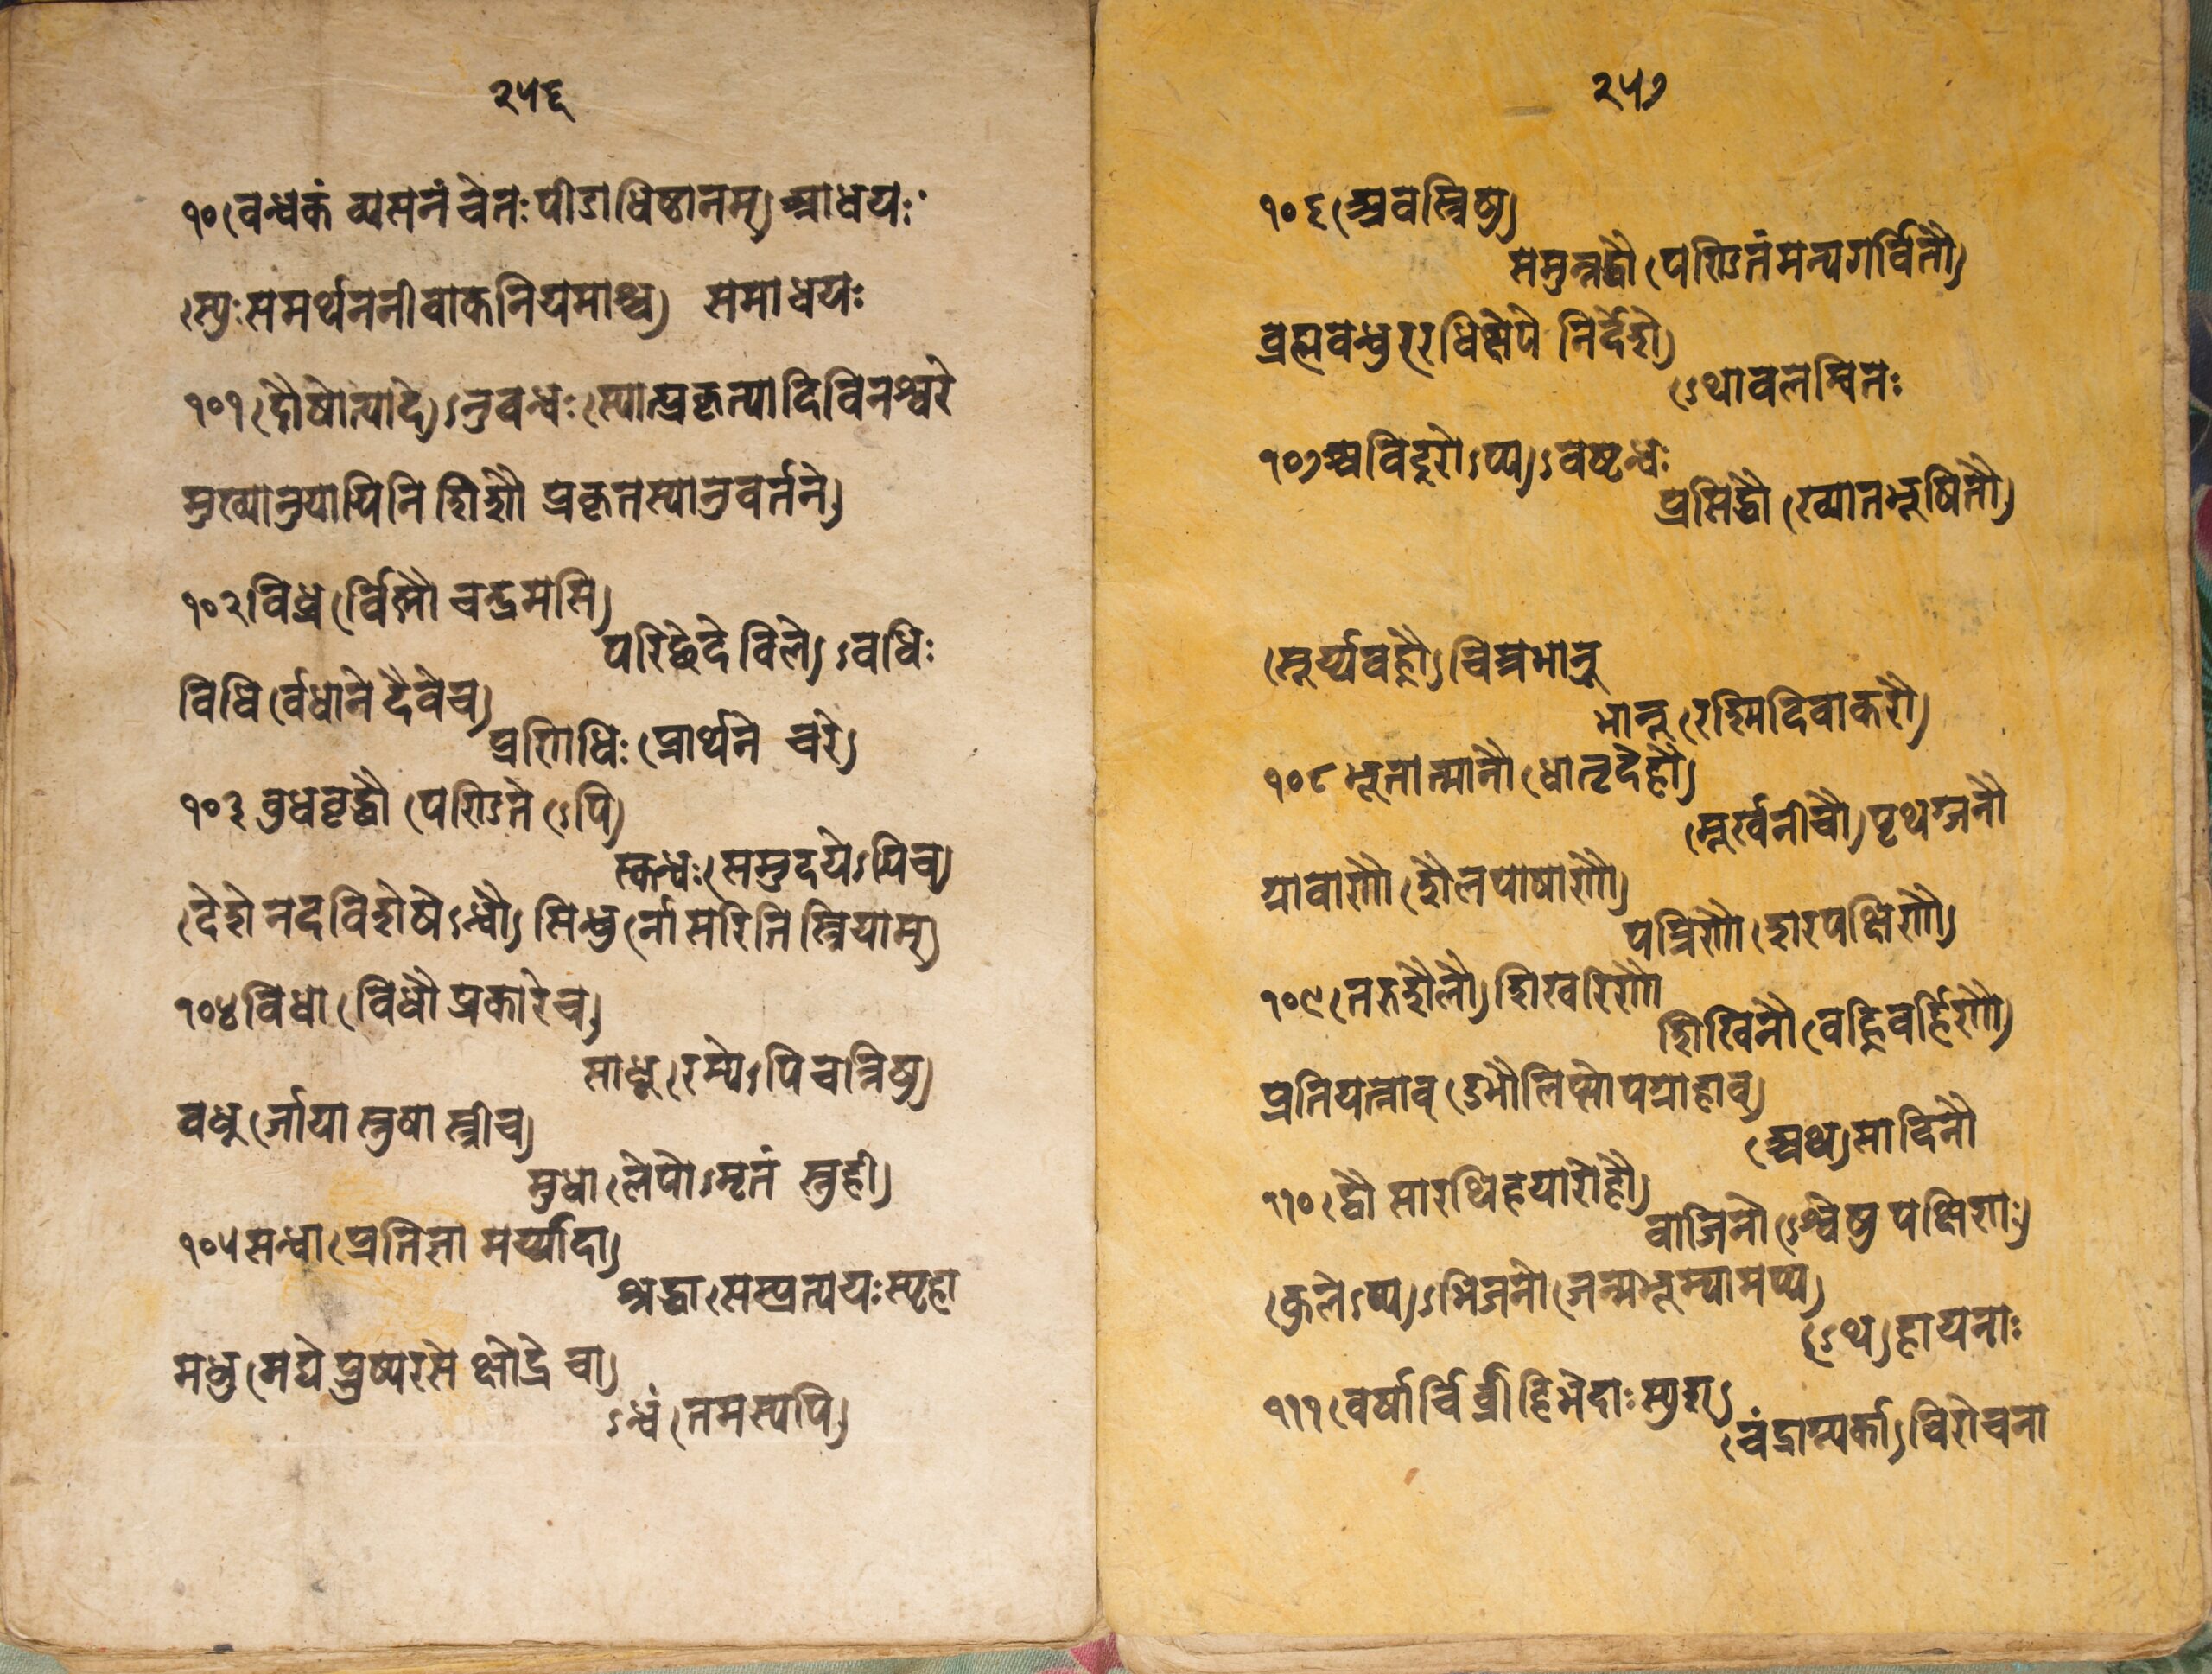 २५६
१०(वन्धकं व्यसनं चेतः पीडाधिष्ठानम्) आधयः
(स्युः समर्थननीवाकनियमाश्च) समाधयः
१०१(दोषोत्पादे)ऽनुवन्धः(स्यात्प्रकृत्यादिविनश्वरे
मुख्यानुयायिनि शिशौ प्रकृतस्यानुवर्तने)
१०२विधु(र्विष्णौ चन्द्रमसि)
परिछेदे विले)ऽवधिः
विधि(र्वधाने दैवेच)
प्रणिधिः(प्रार्थने चरे)
१०३ वुधवृद्धौ(पण्डिते ऽपि)
स्कन्धः(समुदयेऽपिच)
(देशे नदविशेषेऽब्धौ)सिन्धु(र्ना सरिति स्त्रियाम्)
१०४विधा(विधौ प्रकारेच)
साधू(रम्येऽपि चत्रिषु)
वधू(र्जाया स्नुषा स्त्रीच)
सुधा(लेपोऽमृतं स्नुही)
१०५सन्धा(प्रतिज्ञा मर्य्यादा)
श्रद्धा(सम्प्रत्ययः स्पृहा
मधु(मद्ये पुष्परसे क्षौद्रे चा)
ऽन्धं(तमस्यपि)
२५७
१०६(अवस्त्रिषु)
समुन्नद्धौ(पण्डितंमन्यगर्वितौ)
व्रह्मवन्धुररधिक्षेपे निर्देशे)
(ऽथावलम्वितः
१०७श्चविदूरोऽप्य)ऽवष्टन्धः
प्रसिद्धौ(ख्यातभूषितौ)
(सूर्य्यवह्नौ)चित्रभानु
भानू(रश्मिदिवाकरौ)
१०८भूतात्मानौ(धातृदेहौ)
(मूर्खनीचौ)पृथग्जनौ
ग्रावाणौ(शैलपाषाणौ)
पत्रिणौ(शरपक्षिणौ)
१०९(तरुशैलौ)शिखरिणौ
शिखिनौ(वह्निवर्हिणौ)
प्रतियत्नाव्(ऽुभौलिप्सोपग्राहाव्)
(अथ)सादिनौ
११०(द्वौ सारथिहयारोहौ)
वाजिनौ(ऽश्वेषु पक्षिणः)
(कुलेऽप्य)ऽभिजनो(जन्मभूम्यामप्य)
(ऽथ)हायनाः
१११(वर्षार्चिर्व्रीहिभेदाः स्युश्)
(चंद्राग्न्यर्का)विरोचना